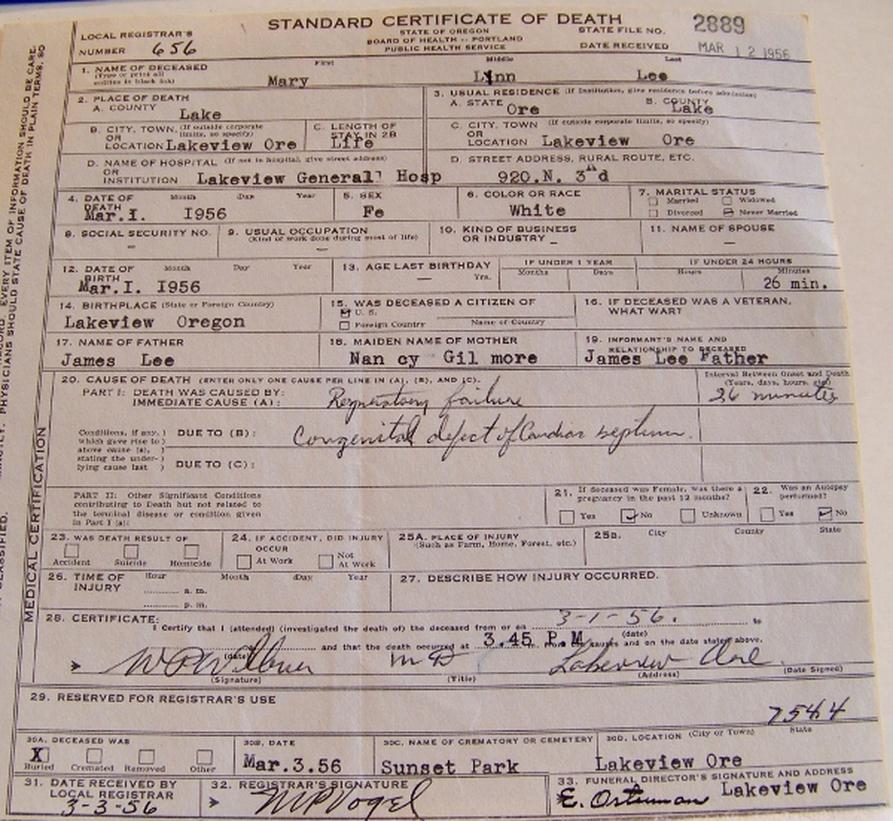 STANDARD CERTIFICATE OF DEATH
LOCAL REGISTRAR'S NUMBER 656
STATE OF OREGON
BOARD OF HEALTH - PORTLAND
PUBLIC HEALTH SERVICE
STATE FILE NO. 2889
DATE RECEIVED MAR 12 1956
1. NAME OF DECEASED (Type or print all entries in black ink) First Mary Middle Linn Last Lee
2. PLACE OF DEATH
A. COUNTY Lake
3. USUAL RESIDENCE (If institution, give residence before admission)
A. STATE Ore B. COUNTY Lake
B. CITY, TOWN, (If outside corporate limits, so specify) OR LOCATION Lakeview Ore
C. LENGTH OF STAY IN 2B Life
C. CITY, TOWN, (If outside corporate limits, so specify) OR LOCATION Lakeview Ore
D. NAME OF HOSPITAL (If not in hospital, give street address) OR INSTITUTION Lakeview General Hosp
D. STREET ADDRESS, RURAL ROUTE, ETC.
920.N. 3 d
4. DATE OF DEATH Month Day Year Mar.I. I956
5. SEX Fe
6. COLOR OR RACE White
7. MARITAL STATUS
Married Widowed
Divorced Never Married
8. SOCIAL SECURITY NO. -
9. USUAL OCCUPATION (Kind of work done during most of life) -
10. KIND OF BUSINESS OR INDUSTRY -
11. NAME OF SPOUSE -
12. DATE OF BIRTH Month Day Year Mar.I. I956
13. AGE LAST BIRTHDAY - Yrs.
IF UNDER 1 YEAR Months Days
IF UNDER 24 HOURS Hours Minutes 26 min.
14. BIRTHPLACE (State or Foreign Country)
Lakeview Oregon
15. WAS DECEASED A CITIZEN OF
U. S.
Foreign Country Name of Country
16. IF DECEASED WAS A VETERAN, WHAT WAR?
17. NAME OF FATHER
James Lee
18. MAIDEN NAME OF MOTHER
Nan cy Gil more
19. INFORMANT'S NAME AND RELATIONSHIP TO DECEASED
James Lee Father
20. CAUSE OF DEATH (ENTER ONLY ONE CAUSE PER LINE IN (A), (B), AND (C).
Interval Between Onset and Death (Years, days, hours, etc)
PART I: DEATH WAS CAUSED BY:
IMMEDIATE CAUSE (A): Respiratory failure 26 minutes
Conditions, if any, which gave rise to above cause (a), stating the underlying cause last
DUE TO (B): Congenital defect of Cardiac septum.
DUE TO (C):
PART II: Other Significant Conditions
contributing to Death but not related to
the terminal disease or condition given
in Part I (a):
21. If deceased was Female, was there a pregnancy in the past 12 months?
Yes No Unknown
22. Was an Autopsy performed?
Yes No
23. WAS DEATH RESULT OF
Accident Suicide Homicide
24. IF ACCIDENT, DID INJURY OCCUR
At Work Not At Work
25A. PLACE OF INJURY (Such as Farm, Home, Forest, etc.)
25B. City County State
26. TIME OF INJURY Hour Month Day Year
a. m.
p. m.
27. DESCRIBE HOW INJURY OCCURRED.
28. CERTIFICATE:
I Certify that I (attended) (investigated the death of) the deceased from or on 3-1-56. to
(date) and that the death occurred at 3.45 P.M m. from the causes and on the date stated above.
(Signature) M D (Title) Lakeview Ore. (Address) (Date Signed)
29. RESERVED FOR REGISTRAR'S USE
7544
30A. DECEASED WAS
X Buried Cremated Removed Other
30B. DATE
Mar.3.56
30C. NAME OF CREMATORY OR CEMETERY
Sunset Park
30D. LOCATION (City or Town) State
Lakeview Ore
31. DATE RECEIVED BY LOCAL REGISTRAR
3-3-56
32. REGISTRAR'S SIGNATURE
MPVogel
33. FUNERAL DIRECTOR'S SIGNATURE AND ADDRESS
Lakeview Ore
MEDICAL CERTIFICATION
EVERY ITEM OF INFORMATION SHOULD BE CARE
PHYSICIANS SHOULD STATE CAUSE OF DEATH IN PLAIN TERMS, SO
CLASSIFIED.